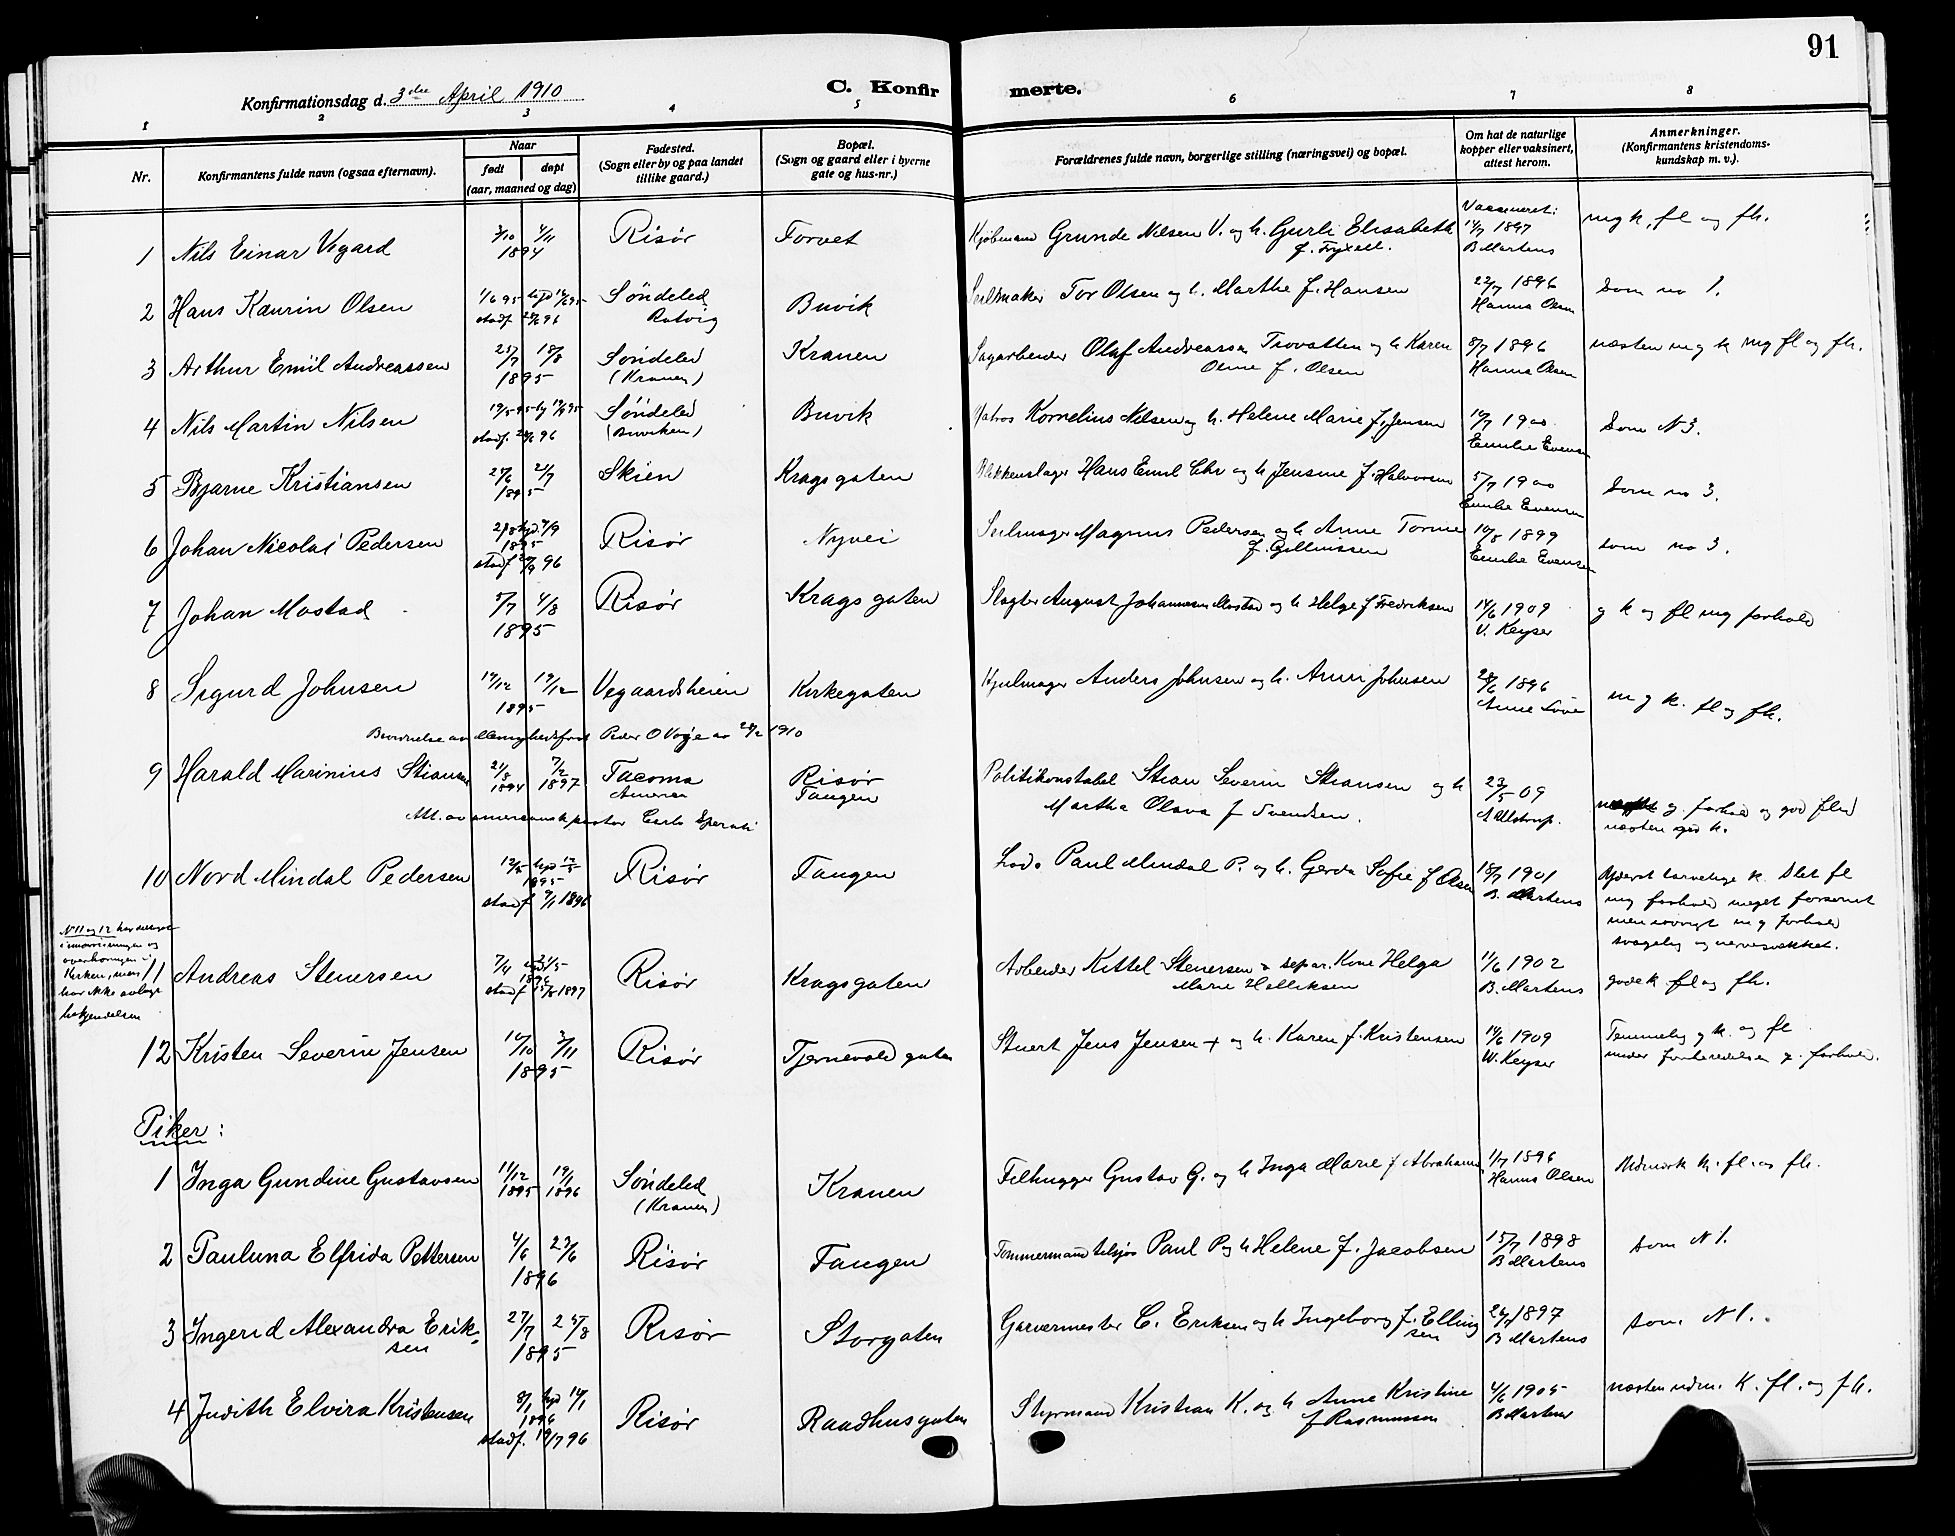 91
Konfirmationsdag d. 3die April 1910
C. Konfirmerte.
1 2 3 4 5 6 7 8
Nr.
Konfirmantens fulde navn (ogsaa efternavn).
Naar
født døpt
(aar, maaned og dag)
Fødested.
(Sogn eller by og paa landet
tillike gaard.)
Bopæl.
(Sogn og gaard eller i byerne
gate og hus-nr.)
Forældrenes fulde navn, borgerlige stilling (næringsvei) og bopæl.
Om hat de naturlige
kopper eller vaksinert,
attest herom.
Anmerkninger.
(Konfirmantens kristendoms-
kundskap m. v.).
1 Nils Einar Vegard 3/10 4/11 1894 Risør Torvet Kjøbmand Grunde Nilsen V. og h. Gurli Elisabeth f. Fryxell. Vaccineret: 14/7 1897 B Martens mg k, fl og fh.
2 Hans Kaurin Olsen 1/6 95 stadf 96 Søndeled Buvik Seilmaker Tor Olsen og h. Marthe f. Hansen 22/7 1896 Hanna Olsen Som no 1.
3 Arthur Emil Andreassen 25/7 18/8 1895 Søndeled (Kranen) Kranen Sagarbeider Olaf Andreassen og h Karen f. Olsen 8/7 1896 Hanna Olsen næsten mg k mg fl og fh.
4 Nils Martin Nilsen 19/5 95 stadf. 96 Søndeled (Buviken) Buvik Matros Kornelius Nilsen og h. Helene Marie f. Jensen 1900 Emilie Evensen Som N 3.
5 Bjarne Kristiansen 2/7 1895 Skien Kragsgaten Blikkenslager Hans Emil Chr og h Jensine f. Halvorsen 5/7 1900 Emilie Evensen Som no 3.
6 Johan Nicolai Pedersen 1895 stadf 96 Risør Nyvei Seilmager Magnus Pedersen og h Anne Tomine 1899 Emilie Evensen som no 3.
7 Johan Mostad 5/7 4/8 1895 Risør Krags gaten Slagter August Johannesen Mostad og h Helge f Fredriksen 14/6 1909 V. Keyser g k og fl mg forhold
8 Sigurd Johnsen 19/12 1895 Vegaardsheien Kirkegaten Hjulmager Anders Johnsen og h. Anne Johnsen 1896 m g k. fl og fh.
Bevidnelse av 1910
9 Harald Marinius Stiansen 21/8 1894 7/2 1897 Tacoma Amerika Risør Tangen Politikonstabel Stian Severin Stiansen og h Martha Olava f Svendsen. 23/5 09 g. forhold og god flid næsten god k.
Att. av amerikansk pastor Carlo Sperati
10 Nord Mindal Pedersen 1895 stadf 9/1 1896 Risør Tangen Lods Paul Mindal P. og h. Gerda Sofie f Olsen 1901 B. Martens Yderst tarvelige k. Slet fl
mg forhold meget forsømt
men iøvrigt m g forhold
svagelig og nervesvækket.
N 11 og 12 har deltat
i undervisningen og
overhøringen i
kirken, men
har ikke avlagt
bekjendelsen
11 Andreas Stenersen 7/4 stadf 1897 Risør Kragsgaten Arbeider Kittel Stenersen separ. Kone Helga Marie 11/6 1902 B. Martens gode k fl og fh.
12 Kristen Severin Jensen 3/11 1895 Risør Tjernevold gaten Stuert Jens Jensen + og h. Karen f. Kristensen 14/6 1909 W. Keyser Temmelig g k. og fl
under forberedelsen g. forhold.
Piker:
1 Inga Gundine Gustavsen 11/12 1895 19/1 1896 Søndeled (Kranen) Kranen Filhugger Gustav G. og h Inga Marie f Abrahams. 1/7 1896 Hanna Olsen Udmerk k. fl. og fh.
2 Paulina Elfrida Pettersen 4/6 23/6 1896 Risør Tangen Tømmermand tilsjøs Paul P og h Helene f. Jacobsen 15/7 1898 B Martens som N 1.
3 Ingerid Alexandra Eriksen 27/7 25/8 1895 Risør Storgaten Garvermester C. Eriksen og h Ingeborg f. Ellingsen 1897 B Martens som N 1.
4 Judith Elvira Kristensen 8/1 1896 stadf. 19/7 96 Risør Raadhusgaten Styrmand Kristian K. og h Anne Kristine f Rasmussen 4/6 1905 B Martens næsten udm. K. fl. og fh.